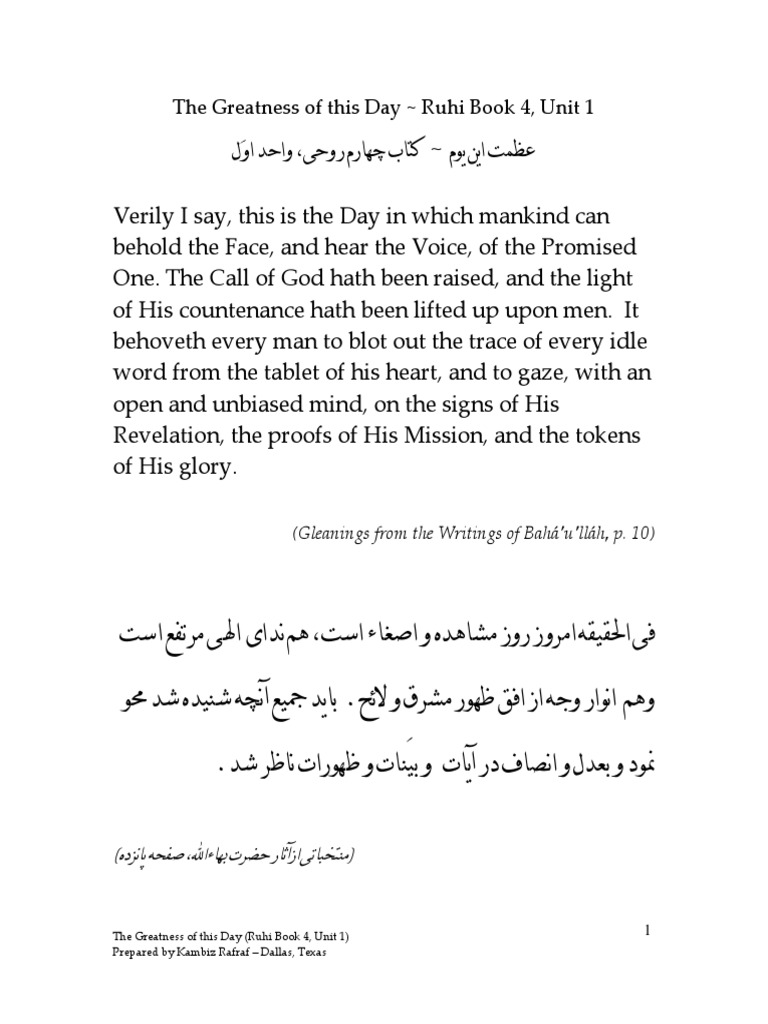 The Greatness of this Day ~ Ruhi Book 4, Unit 1
عظمت این یوم ~ کتاب چهارم روحی، واحد اوّل
Verily I say, this is the Day in which mankind can
behold the Face, and hear the Voice, of the Promised
One. The Call of God hath been raised, and the light
of His countenance hath been lifted up upon men.  It
behoveth every man to blot out the trace of every idle
word from the tablet of his heart, and to gaze, with an
open and unbiased mind, on the signs of His
Revelation, the proofs of His Mission, and the tokens
of His glory.
(Gleanings from the Writings of Bahá'u'lláh, p. 10)
فی الحقیقه امروز روز مشاهده و اصغاء است، هم ندای الهی مرتفع است
وهم انوار وجه از افق ظهور مشرق و لائح . باید جمیع آنچه شنیده شد محو
نمود و بعدل و انصاف در آیات و بیّنات و ظهورات ناظر شد .
(منتخباتی از آثار حضرت بهاءالله، صفحه پانزده)
The Greatness of this Day (Ruhi Book 4, Unit 1)
Prepared by Kambiz Rafraf – Dallas, Texas
1